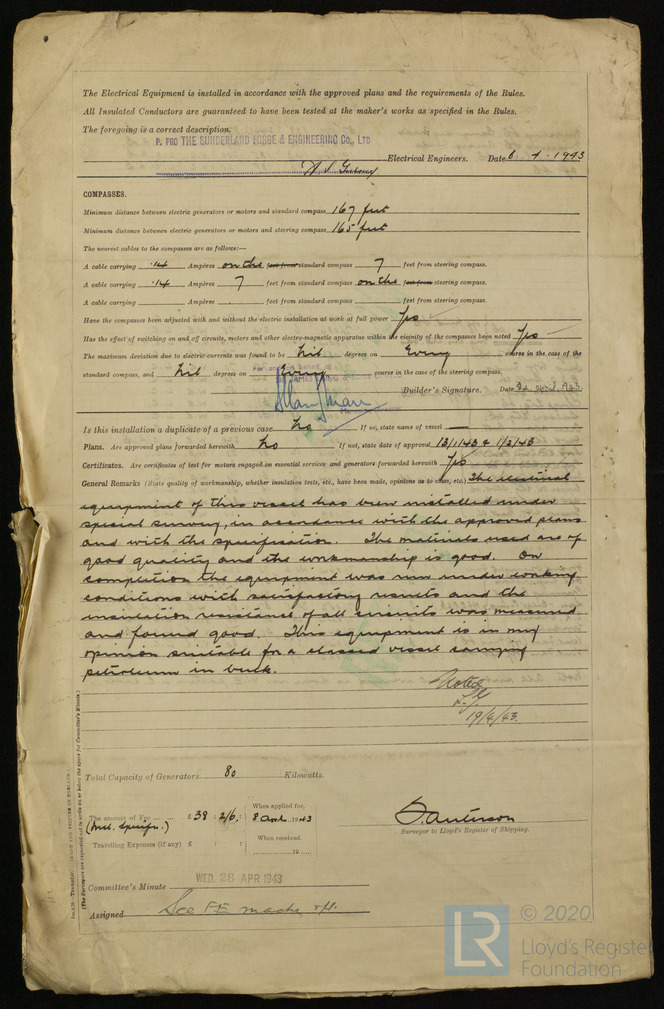 The Electrical Equipment is installed in accordance with the approved plans and the requirements of the Rules.
All Insulated Conductors are guaranteed to have been tested at the maker's works as specified in the Rules.
The foregoing is a correct description.
P. PRO THE SUNDERLAND FORGE & ENGINEERING Co., LTD
Electrical Engineers. Date 6-4-1943
COMPASSES.
Minimum distance between electric generators or motors and standard compass 167 feet
Minimum distance between electric generators or motors and steering compass 165 feet
The nearest cables to the compasses are as follows:—
A cable carrying .14 Ampères on the feet from standard compass 7 feet from steering compass.
A cable carrying .14 Ampères 7 feet from standard compass on the feet from steering compass.
A cable carrying Ampères feet from standard compass feet from steering compass.
Have the compasses been adjusted with and without the electric installation at work at full power Yes
Has the effect of switching on and off circuits, motors and other electro-magnetic apparatus within the vicinity of the compasses been noted Yes
The maximum deviation due to electric currents was found to be Nil degrees on Every course in the case of the
standard compass, and Nil degrees on Every course in the case of the steering compass.
For and on behalf of
Builder's Signature. Date April, 1943
Is this installation a duplicate of a previous case No If so, state name of vessel —
Plans. Are approved plans forwarded herewith No If not, state date of approval 13/1/43 & 1/2/43
Certificates. Are certificates of test for motors engaged on essential services and generators forwarded herewith Yes
General Remarks (State quality of workmanship, whether insulation tests, etc., have been made, opinions as to class, etc.) The electrical
equipment of this vessel has been installed under
special survey, in accordance with the approved plans
and with the specification. The materials used are of
good quality and the workmanship is good. On
completion the equipment was run under working
conditions with satisfactory results and the
insulation resistance of all circuits was measured
and found good. This equipment is in my
opinion suitable for a classed vessel carrying
petroleum in bulk.
Noted
19/4/43.
Total Capacity of Generators 80 Kilowatts.
The amount of Fee ... £38 : 2/6 : When applied for, 8 April 1943
(Incl. Specifn.)
Travelling Expenses (if any) £ : : When received, 19
Surveyor to Lloyd's Register of Shipping.
Committee's Minute WED. 28 APR 1943
Assigned See F.E. mache. rpt.
(The Surveyors are requested not to write on or below the space for Committee's Minute.)
LR © 2020
Lloyd's Register
Foundation